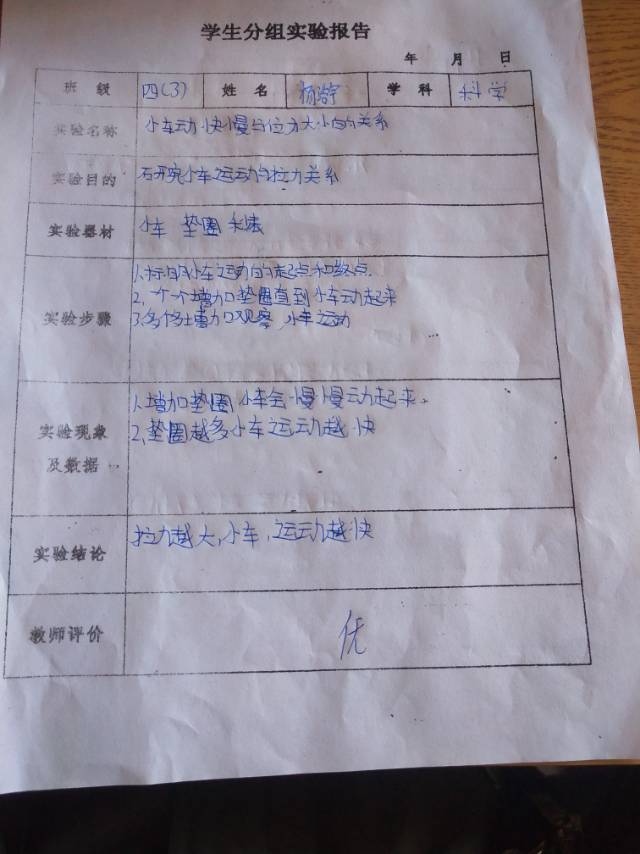 学生分组实验报告
年 月 日
班 级 四(3) 姓 名 杨 学 科 科学
实验名称 小车动快慢与拉力大小的关系
实验目的 研究小车运动与拉力关系
实验器材 小车 垫圈
实验步骤 1、标明小车运动的起点和终点.
2、一个个增加垫圈直到小车动起来
3、多增加观察,小车运动
实验现象及数据 1、增加垫圈小车会慢慢动起来。
2、垫圈越多小车运动越快
实验结论 拉力越大,小车,运动越快
教师评价 优